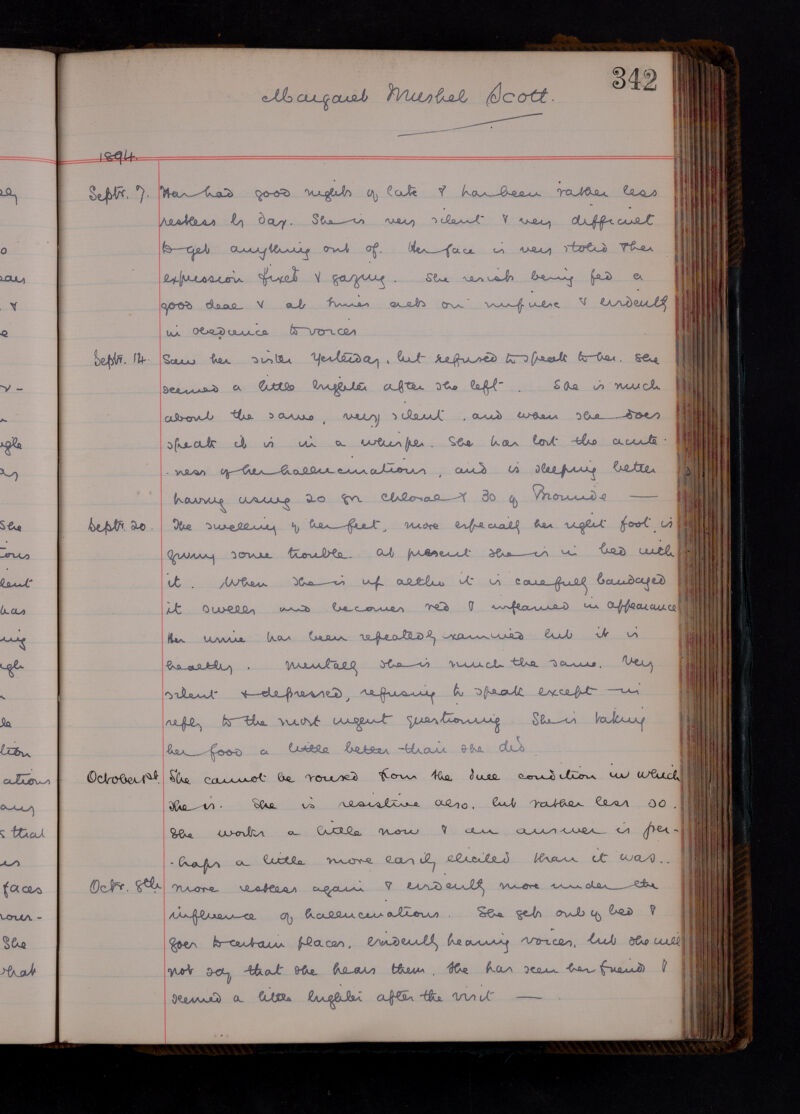 342
Margaret Mushet Scott.
1894.
Septr. 7. Has had good nights of late & has been rather less
restless by day. She is very silent & very difficult
to get anything out of. Her face is very stolid & her
expression fixed & gazing. She resists being fed a
good deal & at times acts on impulse & evidently
in obedience to voices
Septr. 14. Saw her sister yesterday, but refused to speak to her. She
seemed a little brighter after she left. She is much
about the same, very silent, and when she does
speak it is in a whisper. She has lost the acute-
-ness of her hallucinations, and is sleeping better
having using 20 gr chloral & 30 of Bromide —
Septr. 20. The swelling of her feet, more especially her right foot, is
giving some trouble. At present she is in bed with
it. When she is up altho it is carefully bandaged
it swells and becomes red & inflamed in appearance
Her urine has been repeatedly examined but it is
healthy. Mentally she is much the same. Very
silent & depressed, refusing to speak except in
reply to the most urgent questioning She is taking
her food a little better than she did
October 1st. She cannot be roused from the dull condition in which
she is. She is resistive also, but rather less so.
She works a little now & an answer is per-
-haps a little more easily elicited than it was..
Octr. 8th more restless again & evidently more under the
influence of hallucinations. She gets out of bed &
goes to certain places, evidently hearing voices, but she will
not say that she hears them. She has seen her friend &
seemed a little brighter after the visit —